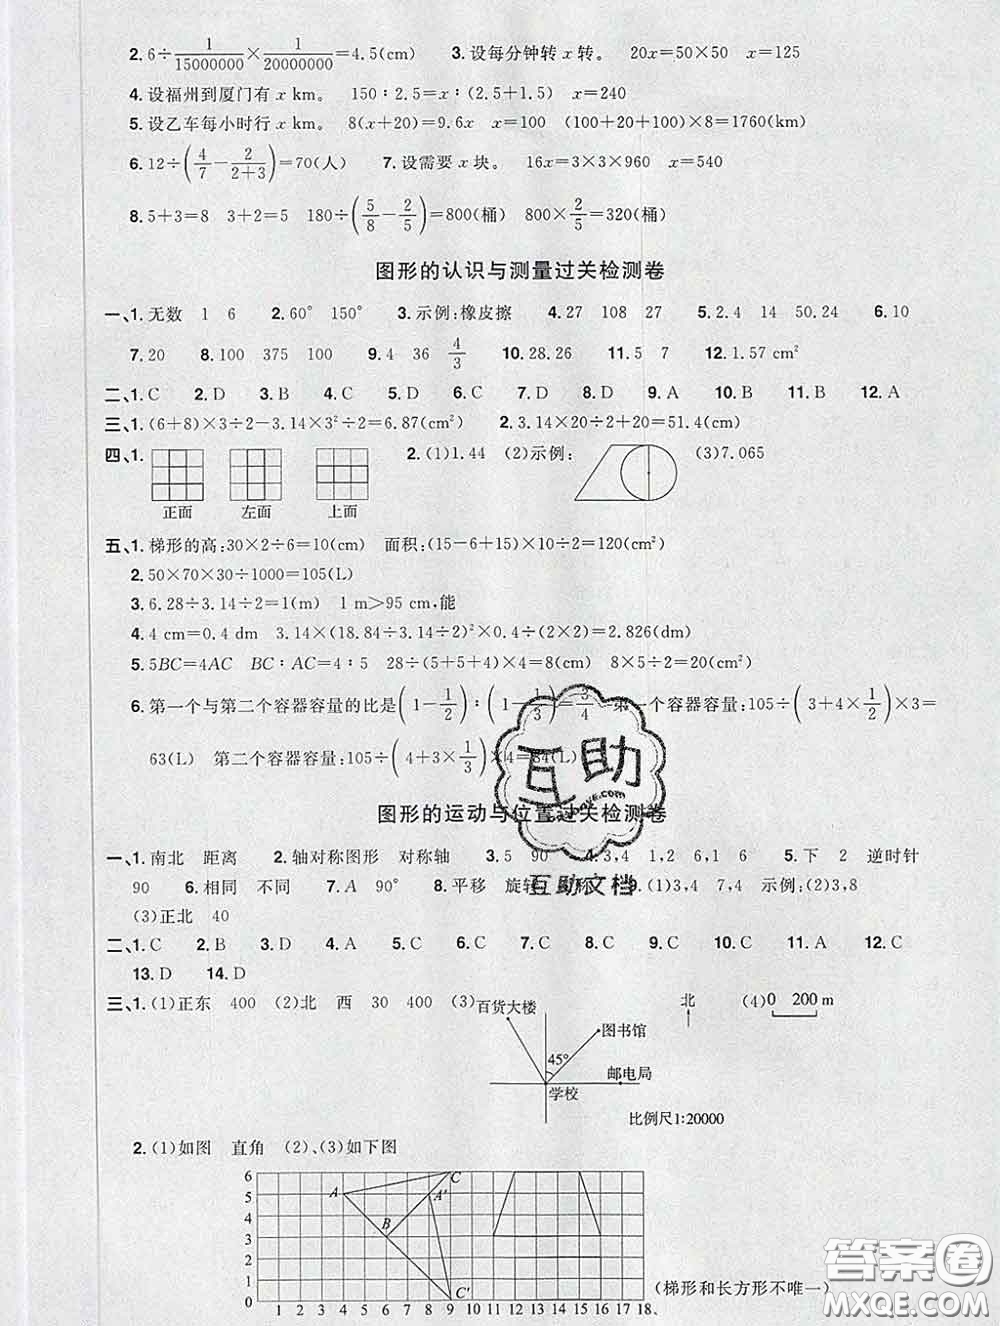 2. 6÷1/15000000×1/20000000=4.5(cm)  3. 设每分钟转 x 转。 20x=50×50  x=125
4. 设福州到厦门有 x km。 150∶2.5=x∶(2.5+1.5)  x=240
5. 设乙车每小时行 x km。 8(x+20)=9.6x  x=100  (100+20+100)×8=1760(km)
6. 12÷(4/7-2/(2+3))=70(人)  7. 设需要 x 块。 16x=3×3×960  x=540
8. 5+3=8  3+2=5  180÷(5/8-2/5)=800(桶)  800×2/5=320(桶)
图形的认识与测量过关检测卷
一、1. 无数 1 6  2. 60° 150°  3. 示例:橡皮擦  4. 27 108 27  5. 2.4 14 50.24  6. 10
7. 20  8. 100 375 100  9. 4 36 4/3  10. 28.26  11. 5 7  12. 1.57 cm²
二、1. C  2. D  3. B  4. C  5. D  6. C  7. D  8. D  9. A  10. B  11. B  12. A
三、1. (6+8)×3÷2-3.14×3²÷2=6.87(cm²)  2. 3.14×20÷2+20=51.4(cm)
四、1.  2. (1)1.44  (2)示例:  (3)7.065
正面 左面 上面
五、1. 梯形的高:30×2÷6=10(cm)  面积:(15-6+15)×10÷2=120(cm²)
2. 50×70×30÷1000=105(L)
3. 6.28÷3.14÷2=1(m)  1 m>95 cm,能
4. 4 cm=0.4 dm  3.14×(18.84÷3.14÷2)²×0.4÷(2×2)=2.826(dm)
5. 5BC=4AC  BC∶AC=4∶5  28÷(5+5+4)×4=8(cm)  8×5÷2=20(cm²)
6. 第一个与第二个容器容量的比是(1-1/2)∶(1-1/3)=3/4  第一个容器容量:105÷(3+4×1/2)×3=
63(L)  第二个容器容量:105÷(4+3×1/3)×4=84(L)
互助
图形的运动与位置过关检测卷
一、1. 南北 距离  2. 轴对称图形 对称轴  3. 5 90  4. 3,4 1,2 6,1 6  5. 下 2 逆时针
90  6. 相同 不同  7. A 90°  8. 平移 旋转 对称  9. (1)3,4 7,4 示例:(2)3,8
互助文档
(3)正北 40
二、1. C  2. B  3. D  4. A  5. C  6. C  7. C  8. C  9. C  10. C  11. A  12. C
13. D  14. D
三、1. (1)正东 400  (2)北 西 30 400  (3)  北  (4)0 200 m
百货大楼
图书馆
45°
邮电局
学校
比例尺1:20000
2. (1)如图 直角 (2)、(3)如下图
6 C
5 A A'
4
3 B
2
1
0 C'
1 2 3 4 5 6 7 8 9 10 11 12 13 14 15 16 17 18、
(梯形和长方形不唯一)
答案圈
MXQE.COM